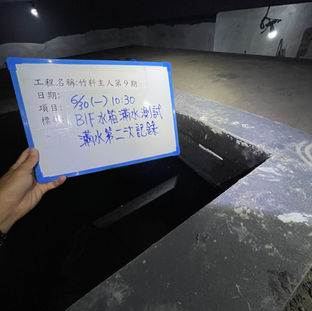 工程名稱:竹科主人第9期
日期: 5/30(一) 10:30
項目: B1F水箱滿水測試
標: 滿水第二次記錄